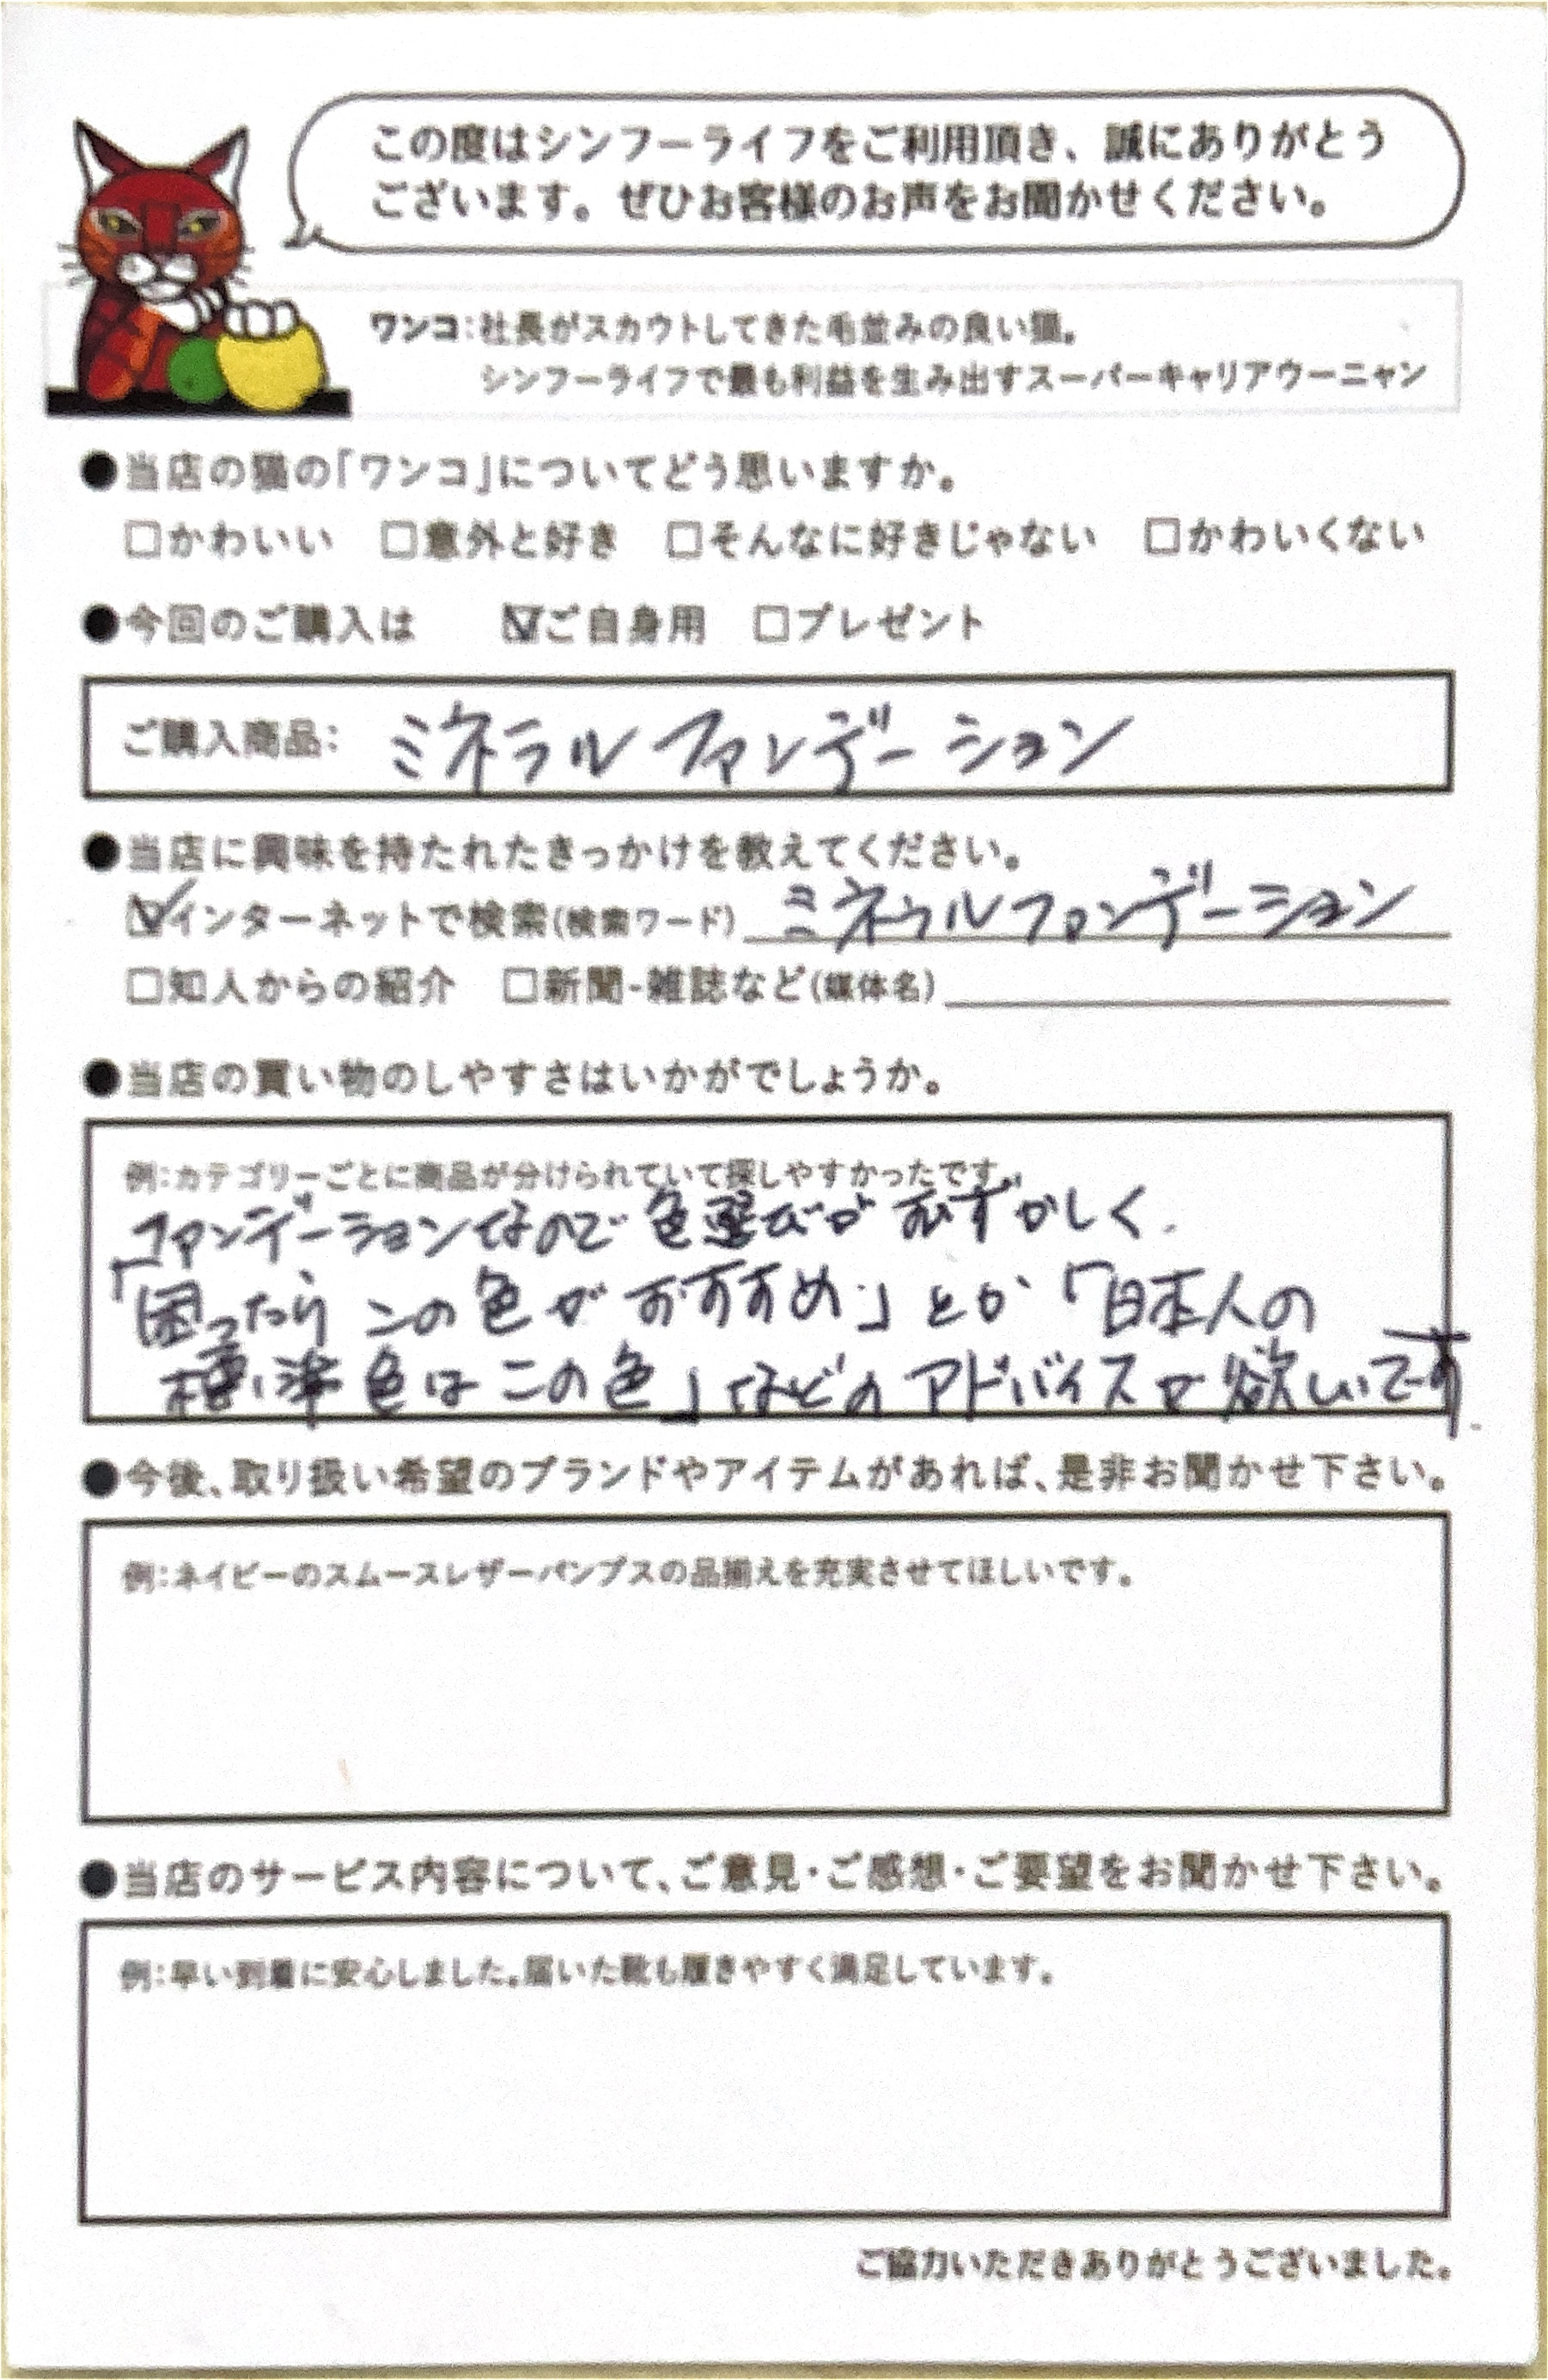 この度はシンフーライフをご利用頂き、誠にありがとう
ございます。ぜひお客様のお声をお聞かせください。
ワンコ：社長がスカウトしてきた毛並みの良い猫。
シンフーライフで最も利益を生み出すスーパーキャリアウーニャン
●当店の猫の「ワンコ」についてどう思いますか。
□かわいい □意外と好き □そんなに好きじゃない □かわいくない
●今回のご購入は ☑ご自身用 □プレゼント
ご購入商品： ミネラルファンデーション
●当店に興味を持たれたきっかけを教えてください。
☑インターネットで検索(検索ワード) ミネラルファンデーション
□知人からの紹介 □新聞・雑誌など(媒体名)
●当店の買い物のしやすさはいかがでしょうか。
例：カテゴリーごとに商品が分けられていて探しやすかったです。
ファンデーションなので色選びがむずかしく、
「困ったらこの色がおすすめ」とか「日本人の
標準色はこの色」などのアドバイスが欲しいです.
●今後、取り扱い希望のブランドやアイテムがあれば、是非お聞かせ下さい。
例：ネイビーのスムースレザーパンプスの品揃えを充実させてほしいです。
●当店のサービス内容について、ご意見・ご感想・ご要望をお聞かせ下さい。
例：早い到着に安心しました。届いた靴も履きやすく満足しています。
ご協力いただきありがとうございました。